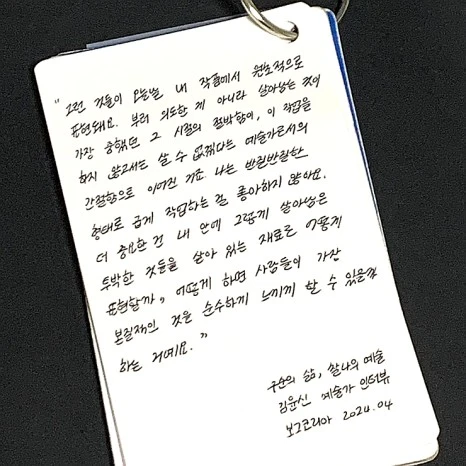 "그런 것들이 오늘날 내 작품에서 원초적으로
표현돼요. 부러 의도한 게 아니라 살아남는 것이
가장 중했던 그 시절의 절박함이, 이 작업을
하지 않고서는 살 수 없겠다는 예술가로서의
간절함으로 이어진 거죠. 나는 반질반질한
형태로 곱게 작업하는 걸 좋아하지 않아요.
더 중요한 건 내 안에 그렇게 살아남은
투박한 것들을 살아 있는 재료로 어떻게
표현할까, 어떻게 하면 사람들이 가장
본질적인 것을 순수하게 느끼게 할 수 있을까
하는 거예요."
구순의 삶, 찰나의 예술
김윤신 예술가 인터뷰
보그코리아 2024.04